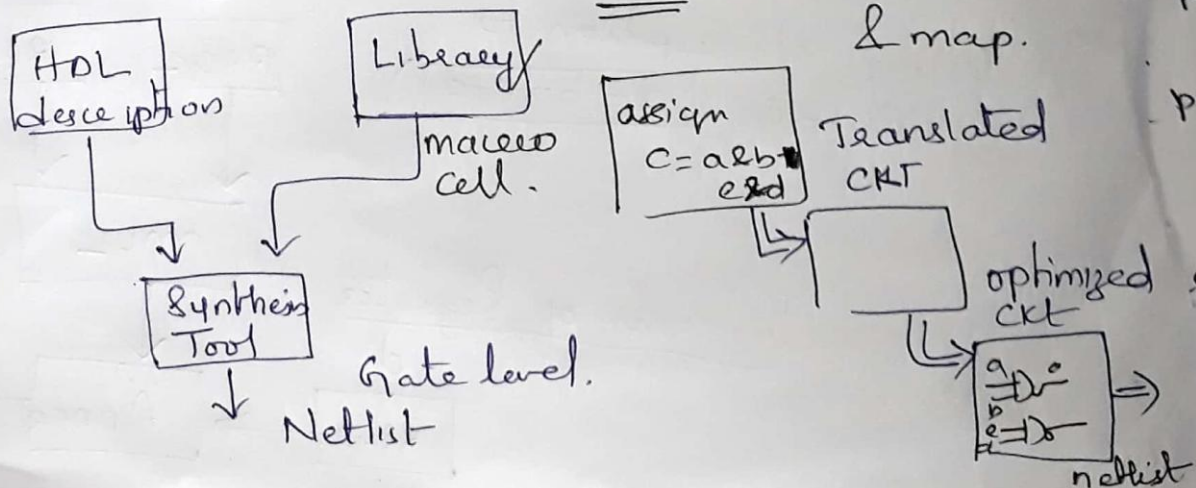 HDL
description
Library
macro
cell.
Synthesis
Tool
Gate level.
Netlist
& map.
assign
c = a&b
e&d
Translated
CKT
optimized
ckt
a
b
e
netlist
p